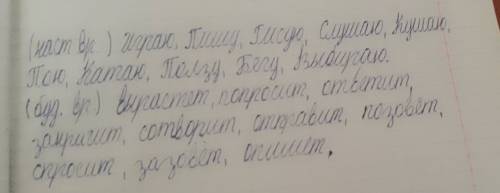 (наст вр.) Играю, Пишу, Рисую, Слушаю, Кушаю,
Пою, Катаю, Ползу, Бегу, Выбираю.
(буд. вр.) вырастет, попросит, ответит,
закричит, сотворит, отправит, позовёт,
спросит, зазовёт, опишет.